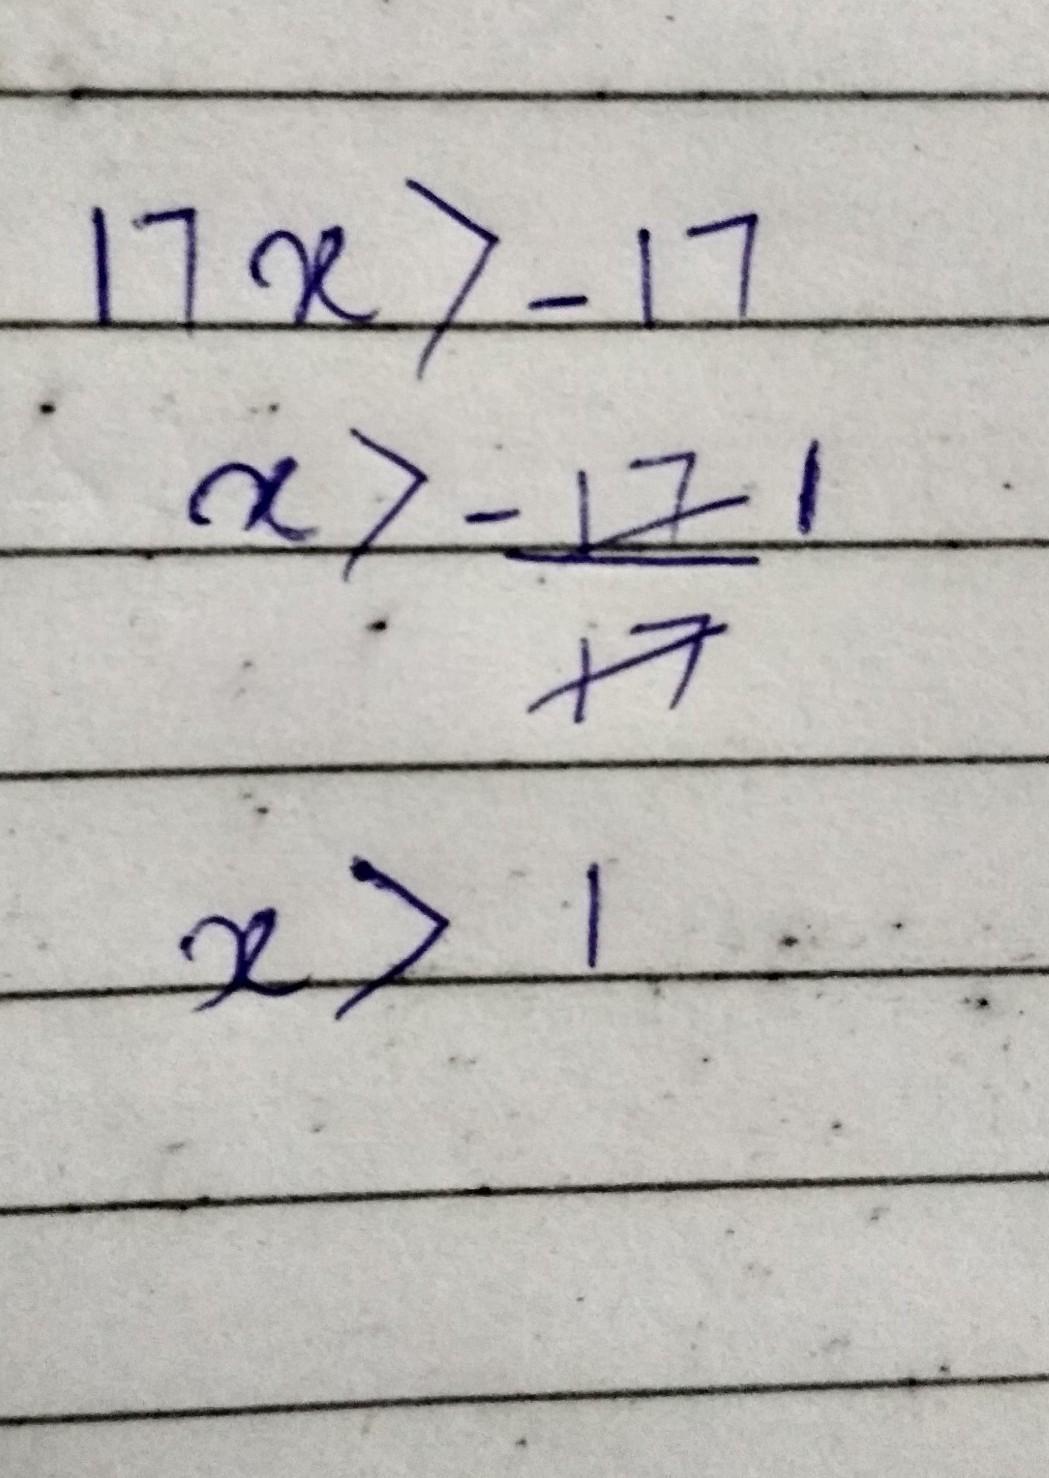 17x > -17
x > -17/17 1
x > 1